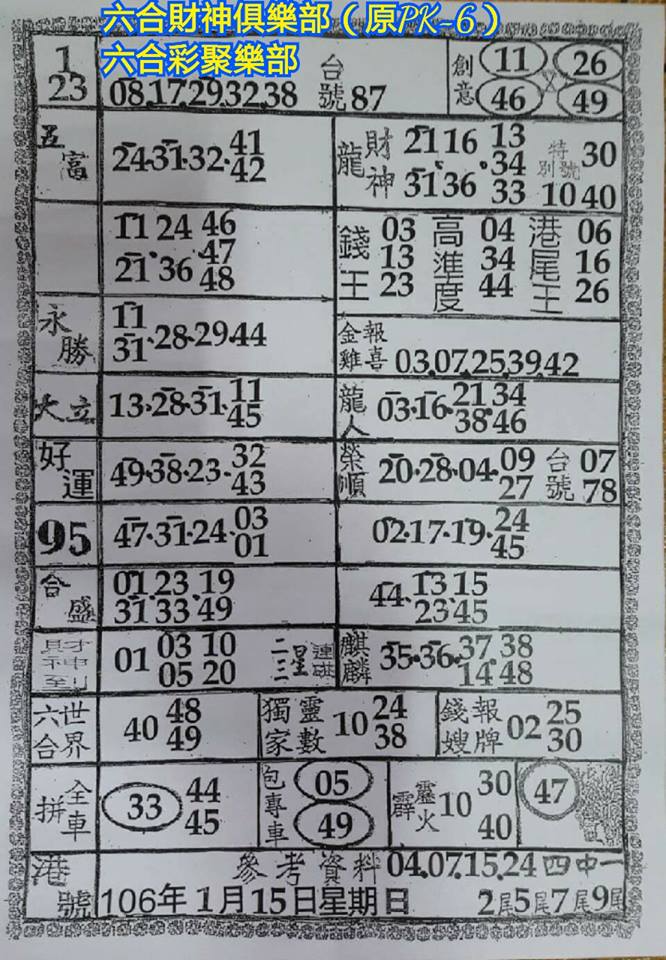 六合財神俱樂部（原PK-6）
六合彩聚樂部
1
23
08.17.29.32.38 台號 87
創意 11 26
X
46 49
五富 24.31.32.41
42
龍 財神 21 16 13
34
31 36 33
特別號 30
10 40
11 24 46
47
21 36 48
錢王 03 13 23
高進度 04 34 44
港尾王 06 16 26
永勝 11
31.28.29.44
金雞報喜 03.07.25.39.42
大立 13.28.31.11
45
龍人 03.16.21 34
38.46
好運 49.38.23.32
43
榮順 20.28.04.09
27
台號 07
78
95 47.31.24.03
01
02.17.19.24
45
合盛 01.23.19
31 33 49
44.13 15
23 45
財神到 01 03 10
05 20
二三星連碰
麒麟 35.36.37.38
14 48
六合世界 40 48
49
獨家靈數 10 24
38
錢嫂報牌 02 25
30
全車拼 33 44
45
包專車 05
49
霹靂火 10 30
40
47
港號 參考資料 04.07.15.24 四中一
106年1月15日星期日 2尾5尾7尾9尾